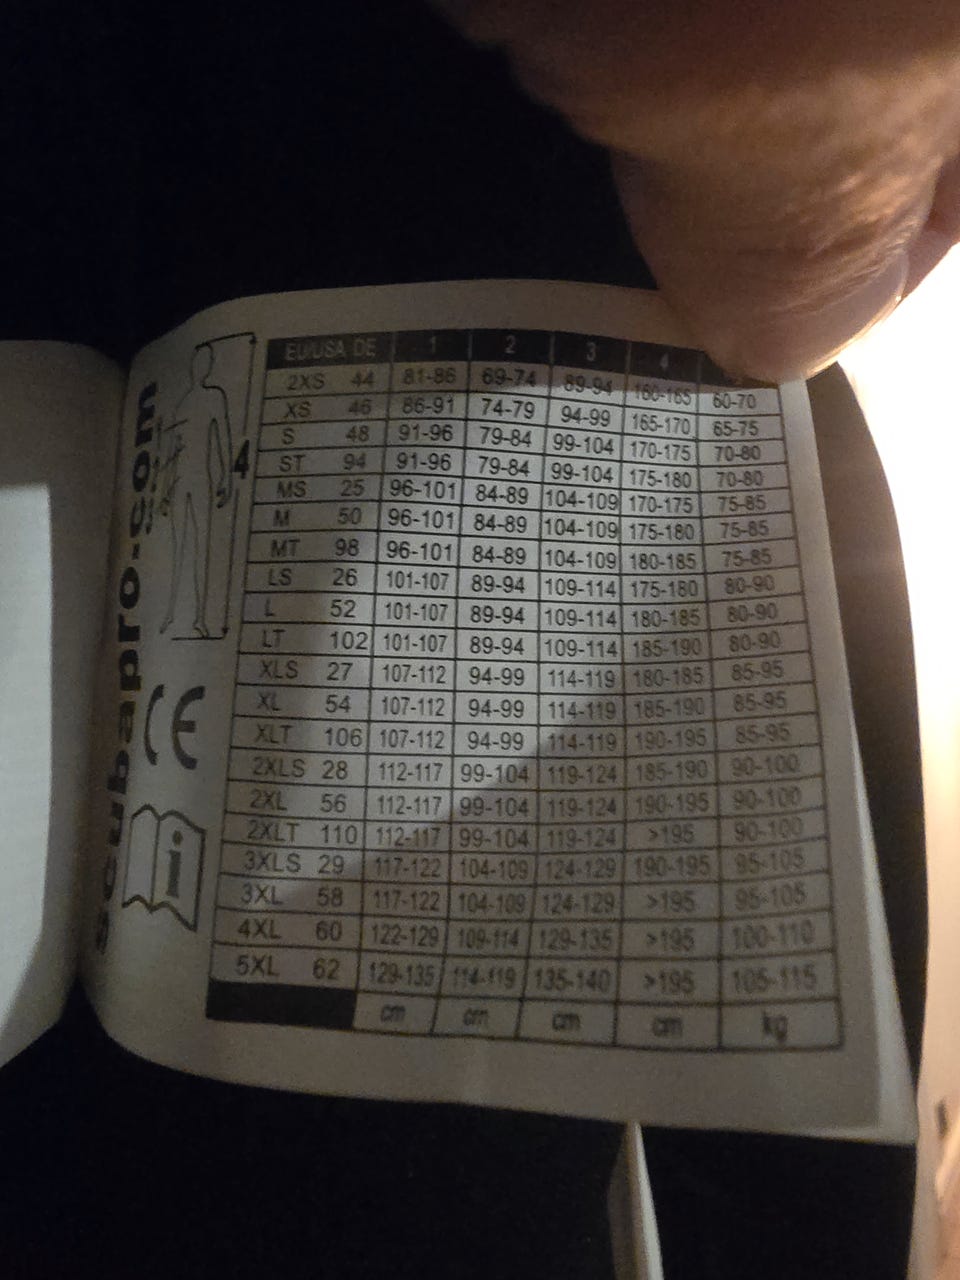 scubapro.com
4
CE
i
EU/USA DE 1 2 3 4
2XS 44 81-86 69-74 89-94 160-165 60-70
XS 46 86-91 74-79 94-99 165-170 65-75
S 48 91-96 79-84 99-104 170-175 70-80
ST 94 91-96 79-84 99-104 175-180 70-80
MS 25 96-101 84-89 104-109 170-175 75-85
M 50 96-101 84-89 104-109 175-180 75-85
MT 98 96-101 84-89 104-109 180-185 75-85
LS 26 101-107 89-94 109-114 175-180 80-90
L 52 101-107 89-94 109-114 180-185 80-90
LT 102 101-107 89-94 109-114 185-190 80-90
XLS 27 107-112 94-99 114-119 180-185 85-95
XL 54 107-112 94-99 114-119 185-190 85-95
XLT 106 107-112 94-99 114-119 190-195 85-95
2XLS 28 112-117 99-104 119-124 185-190 90-100
2XL 56 112-117 99-104 119-124 190-195 90-100
2XLT 110 112-117 99-104 119-124 >195 90-100
3XLS 29 117-122 104-109 124-129 190-195 95-105
3XL 58 117-122 104-109 124-129 >195 95-105
4XL 60 122-129 109-114 129-135 >195 100-110
5XL 62 129-135 114-119 135-140 >195 105-115
cm cm cm cm kg